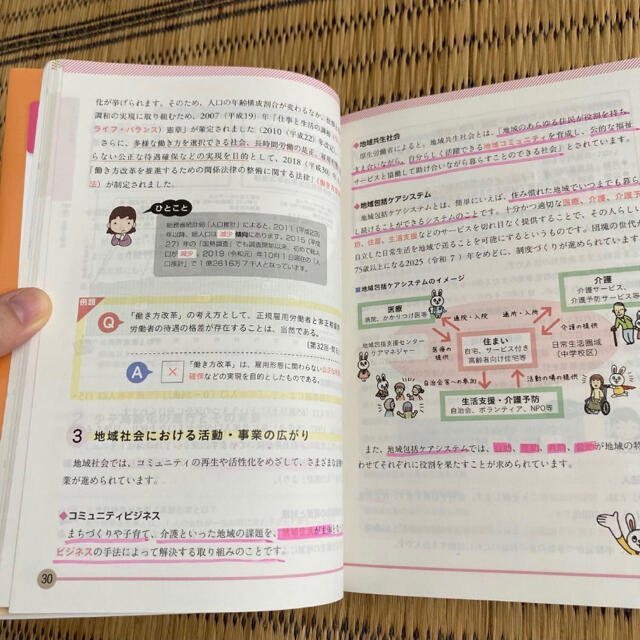 化が挙げられます。そのため、人口の年齢構成割合が変わるなか、
調和の実現に取り組むため、2007（平成19）年「仕事と生活の調和
ライフ・バランス）憲章」が策定されました（2010（平成22）年改定）
さらに、多様な働き方を選択できる社会、長時間労働の是正、雇用
らない公正な待遇確保などの実現を目的として、2018（平成30）
「働き方改革を推進するための関係法律の整備に関する法律」（働き方
法）が制定されました。
ひとこと
総務省統計局「人口推計」によると、2011（平成23）
年以降、総人口は減少傾向にあります。2015（平成
27）年の「国勢調査」でも調査開始以来、初めて総人
口が減少。2019（令和元）年10月1日現在の「人
口推計」で1億2616万7千人となっています。
例題
Q 「働き方改革」の考え方として、正規雇用労働者と非正規雇用
労働者の待遇の格差が存在することは、当然である。
（第32回
A × 「働き方改革」は、雇用形態に関わらない公正な待遇
確保などの実現を目的としたものである。
3 地域社会における活動・事業の広がり
地域社会では、コミュニティの再生や活性化をめざして、さまざまな
業が進められています。
◆コミュニティビジネス
まちづくりや子育て、介護といった地域の課題を、地域住民が主体
ビジネスの手法によって解決する取り組みのことです。
30
◆地域共生社会
厚生労働省によると、地域共生社会とは、「地域のあらゆる住民が役割を持ち
支え合いながら、自分らしく活躍できる地域コミュニティを育成し、公的な福祉
サービスと協働して助け合いながら暮らすことのできる社会」とされています。
◆地域包括ケアシステム
地域包括ケアシステムとは、簡単にいえば、住み慣れた地域でいつまでも暮ら
し続けることができるシステムのことです。十分かつ適切な医療、介護、介護予
防、住意、生活支援などのサービスを切れ目なく提供することで、その人らしい
自立した日常生活を地域で送ることを可能にするというものです。団塊の世代が
75歳以上になる2025（令和7）年をめどに、制度づくりが進められています
■地域包括ケアシステムのイメージ
医療
病院、かかりつけ医等
通院・入院
通所・入所
介護
介護サービス、
介護予防サービス
地域包括支援センター
ケアマネジャー
医療の
提供
住まい
自宅、サービス付き
高齢者向け住宅等
介護の提供
日常生活圏域
（中学校区）
自治会等への参加
活動の場の提供
生活支援・介護予防
自治会、ボランティア、NPO等
また、地域包括ケアシステムでは、自助、互助、共助、公助が地域の特
わせてそれぞれに役割を果たすことが求められています。